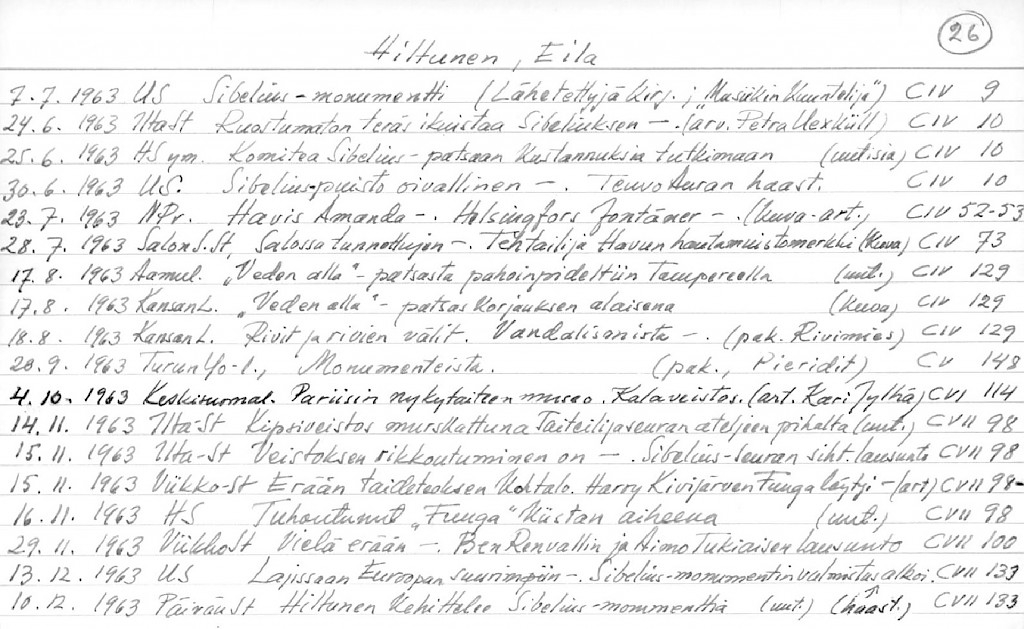 26
Hiltunen, Eila
7.7. 1963 US Sibelius-monumentti (Lähetettyjä kirj. j „Musiikin Kuuntelija") CIV 9
24.6. 1963 Ilta-St Ruostumaton teräs ikuistaa Sibeliuksen -. (arv. Petra Uexküll) CIV 10
25.6. 1963 HS ym. Komitea Sibelius-patsaan kustannuksia tutkimaan (uutisia) CIV 10
30.6. 1963 US. Sibelius-puisto oivallinen -. Teuvo Auran haast. CIV 10
23.7. 1963 NPr. Havis Amanda -. Helsingfors fontäner -. (kuva-art., CIV 52-53
28.7. 1963 Salon S.St, Salossa tunnottujen -. Tehtailija Havun hautamuistomerkki (kuva) CIV 73
17.8. 1963 Aamul. „Veden alla"- patsasta pahoinpideltiin Tampereella (uut.) CIV 129
17.8. 1963 Kansan L. „Veden alla"- patsas korjauksen alaisena (kuva) CIV 129
18.8. 1963 Kansan L. Rivit ja rivien välit. Vandalismista -. (pak. Rivimies) CIV 129
20.9. 1963 Turun Yo-l., Monumenteista. (pak., Pieridit) CV 148
4.10. 1963 Keskisuomal. Pariisin nykytaiteen museo. Kalaveistos. (art. Kari Jylhä) CVI 114
14.11. 1963 Ilta-St Kipsiveistos murskattuna Taiteilijaseuran ateljeen pihalta (uut.) CVII 98
15.11. 1963 Ilta-St Veistoksen rikkoutuminen on -. Sibelius-seuran siht. lausunto CVII 98
15.11. 1963 Viikko-St Erään taideteoksen kohtalo. Harry Kivijärven Fuuga löytyi - (art) CVII 98-
16.11. 1963 HS Tuhoutunut „Fuuga" kiistan aiheena (uut.) CVII 98
29.11. 1963 ViikkoSt Vielä erään -. Ben Renvallin ja Aimo Tukiaisen lausunto CVII 100
13.12. 1963 US Lajissaan Euroopan suurimpiin -. Sibelius-monumentin valmistus alkoi. CVII 133
10.12. 1963 PäivänSt Hiltunen kehittelee Sibelius-monumenttia (uut.) (haast.) CVII 133